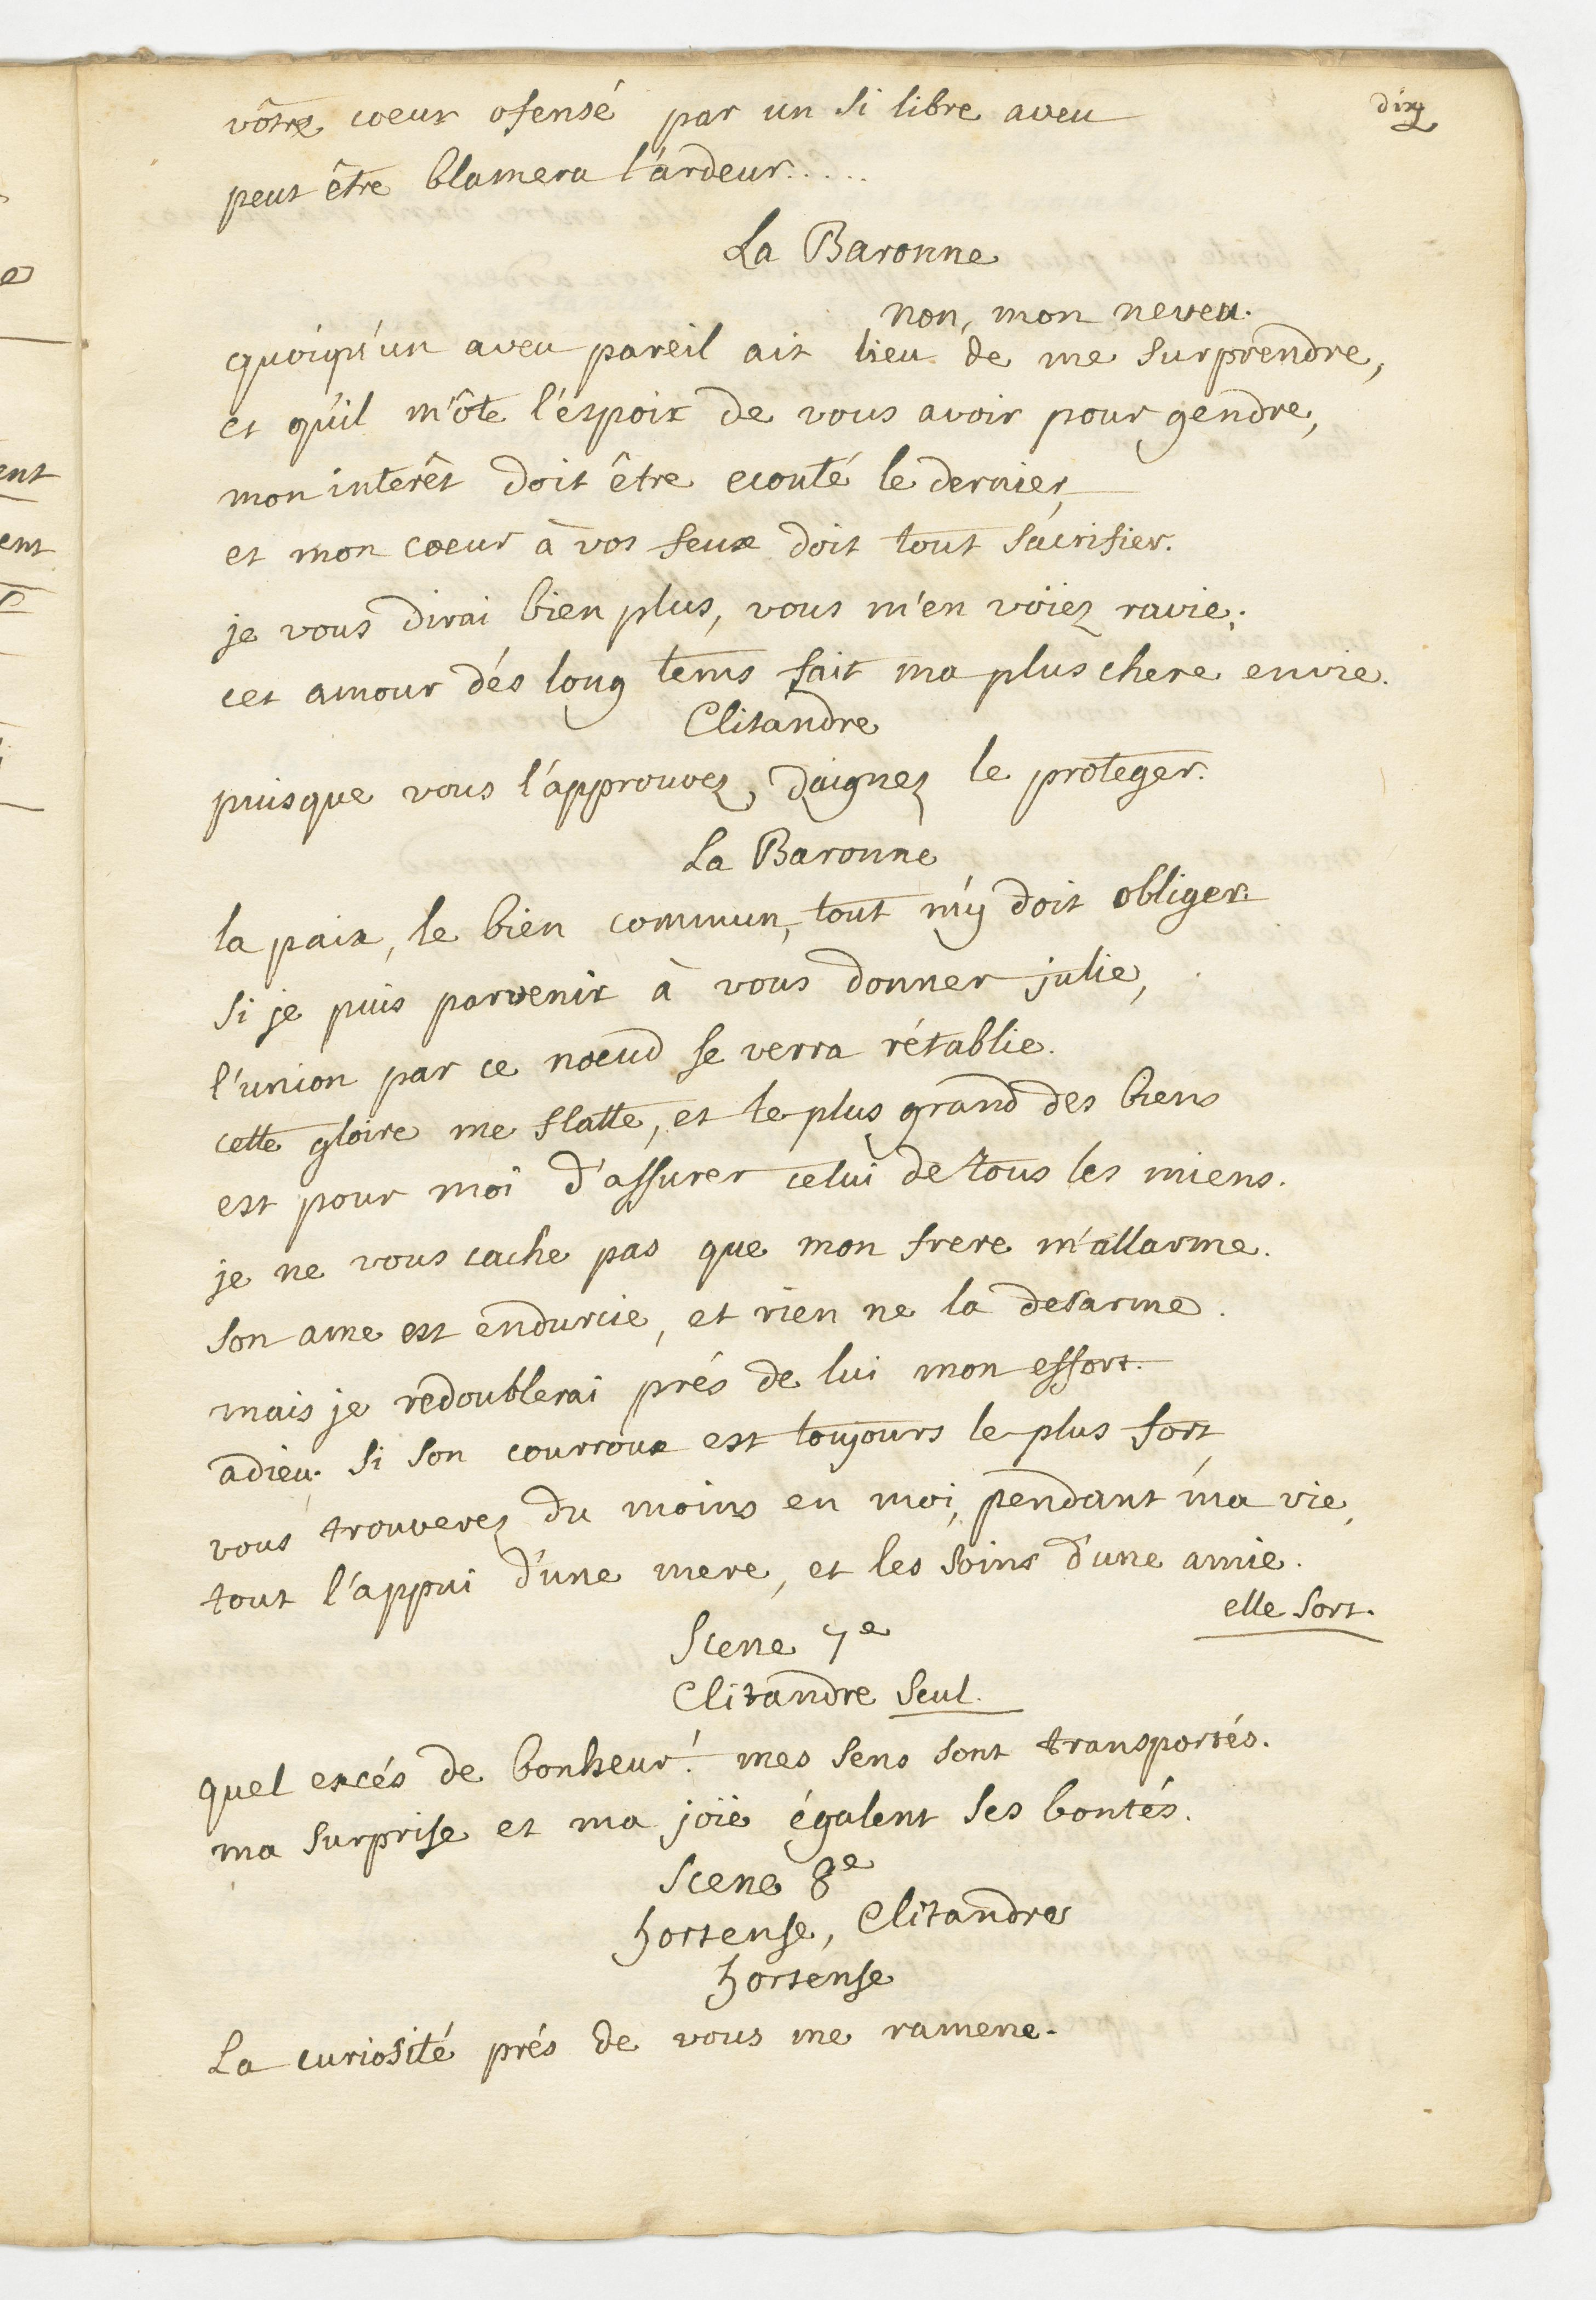 dix
vôtre coeur ofensé par un si libre aveu
peut être blamera l'ardeur.....
La Baronne
non, mon neveu.
quoiqu'un aveu pareil ait lieu de me surprendre,
et qu'il m'ôte l'espoir de vous avoir pour gendre,
mon interêt doit être ecouté le dernier,
et mon coeur à vos feux doit tout sacrifier.
je vous dirai bien plus, vous m'en voiez ravie;
cet amour dés long tems fait ma plus chere envie.
Clitandre
puisque vous l'approuvez, daignez le proteger.
La Baronne
la paix, le bien commun, tout m'y doit obliger.
si je puis parvenir à vous donner julie,
l'union par ce noeud se verra rétablie.
cette gloire me flatte, et le plus grand des biens
est pour moi d'assurer celui de tous les miens.
je ne vous cache pas que mon frere m'allarme.
son ame est endurcie, et rien ne la desarme.
mais je redoublerai prés de lui mon effort.
adieu. si son courroux est toujours le plus fort,
vous trouverez du moins en moi, pendant ma vie,
tout l'appui d'une mere, et les soins d'une amie.
elle sort.
Scene 7e
Clitandre seul.
quel excés de bonheur! mes sens sont transportés.
ma surprise et ma joïe égalent ses bontés.
Scene 8e
hortense, Clitandre
hortense
La curiosité prés de vous me ramene.